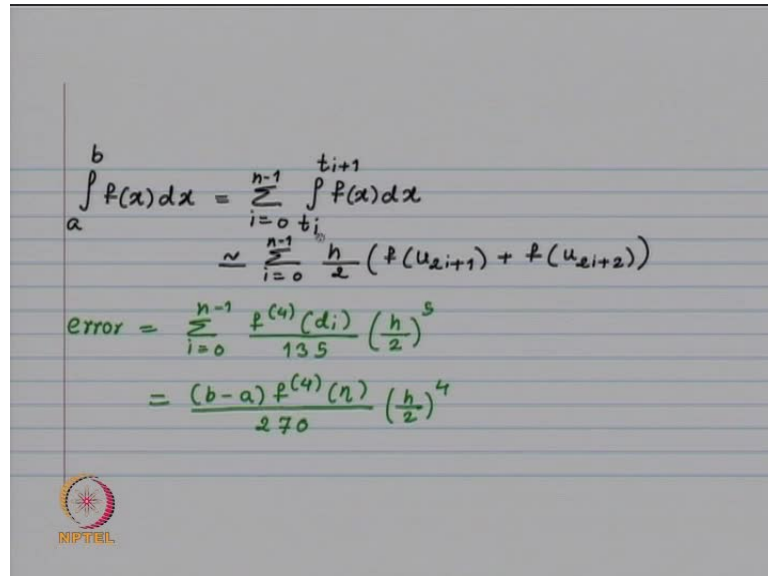 b
∫ f(x)dx = Σ_{i=0}^{n-1} ∫_{t_i}^{t_{i+1}} f(x)dx
a
≃ Σ_{i=0}^{n-1} h/2 (f(u_{2i+1}) + f(u_{2i+2}))
error = Σ_{i=0}^{n-1} f^{(4)}(d_i)/135 (h/2)^5
= (b-a) f^{(4)}(η)/270 (h/2)^4
NPTEL